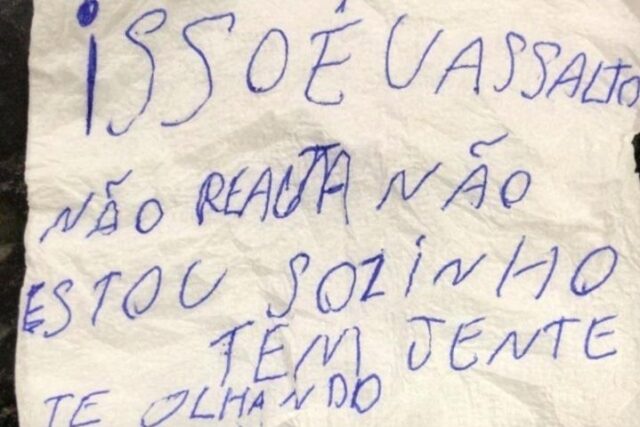 ISSO É U ASSALTO
NÃO REAGTA NÃO
ESTOU SOZINHO
TEM JENTE
TE OLHANDO